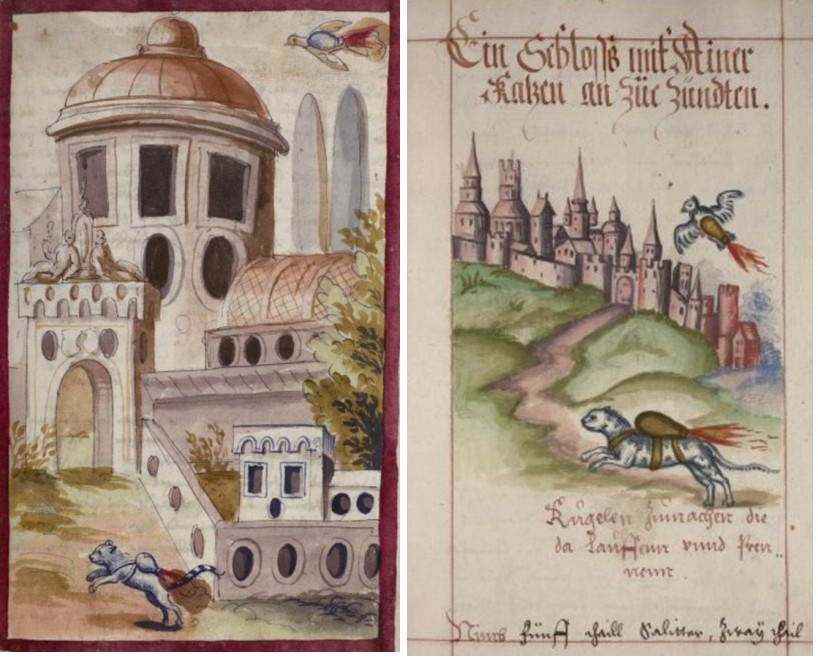 Ein Schlosß mit Einer
Katzen an Züe Zündten.
Kugelen Zumachen die
da Lauffenn vnnd Pren„
nenn.
Nimb fünff thaill Salitter, Zway thail